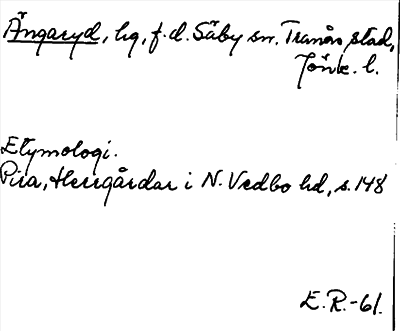 Ängaryd, hg, f. d. Säby sn. Tranås stad,
Jönk. l.
Etymologi.
Pira, Herrgårdar i N. Vedbo hd, s. 148
E. R. -61.